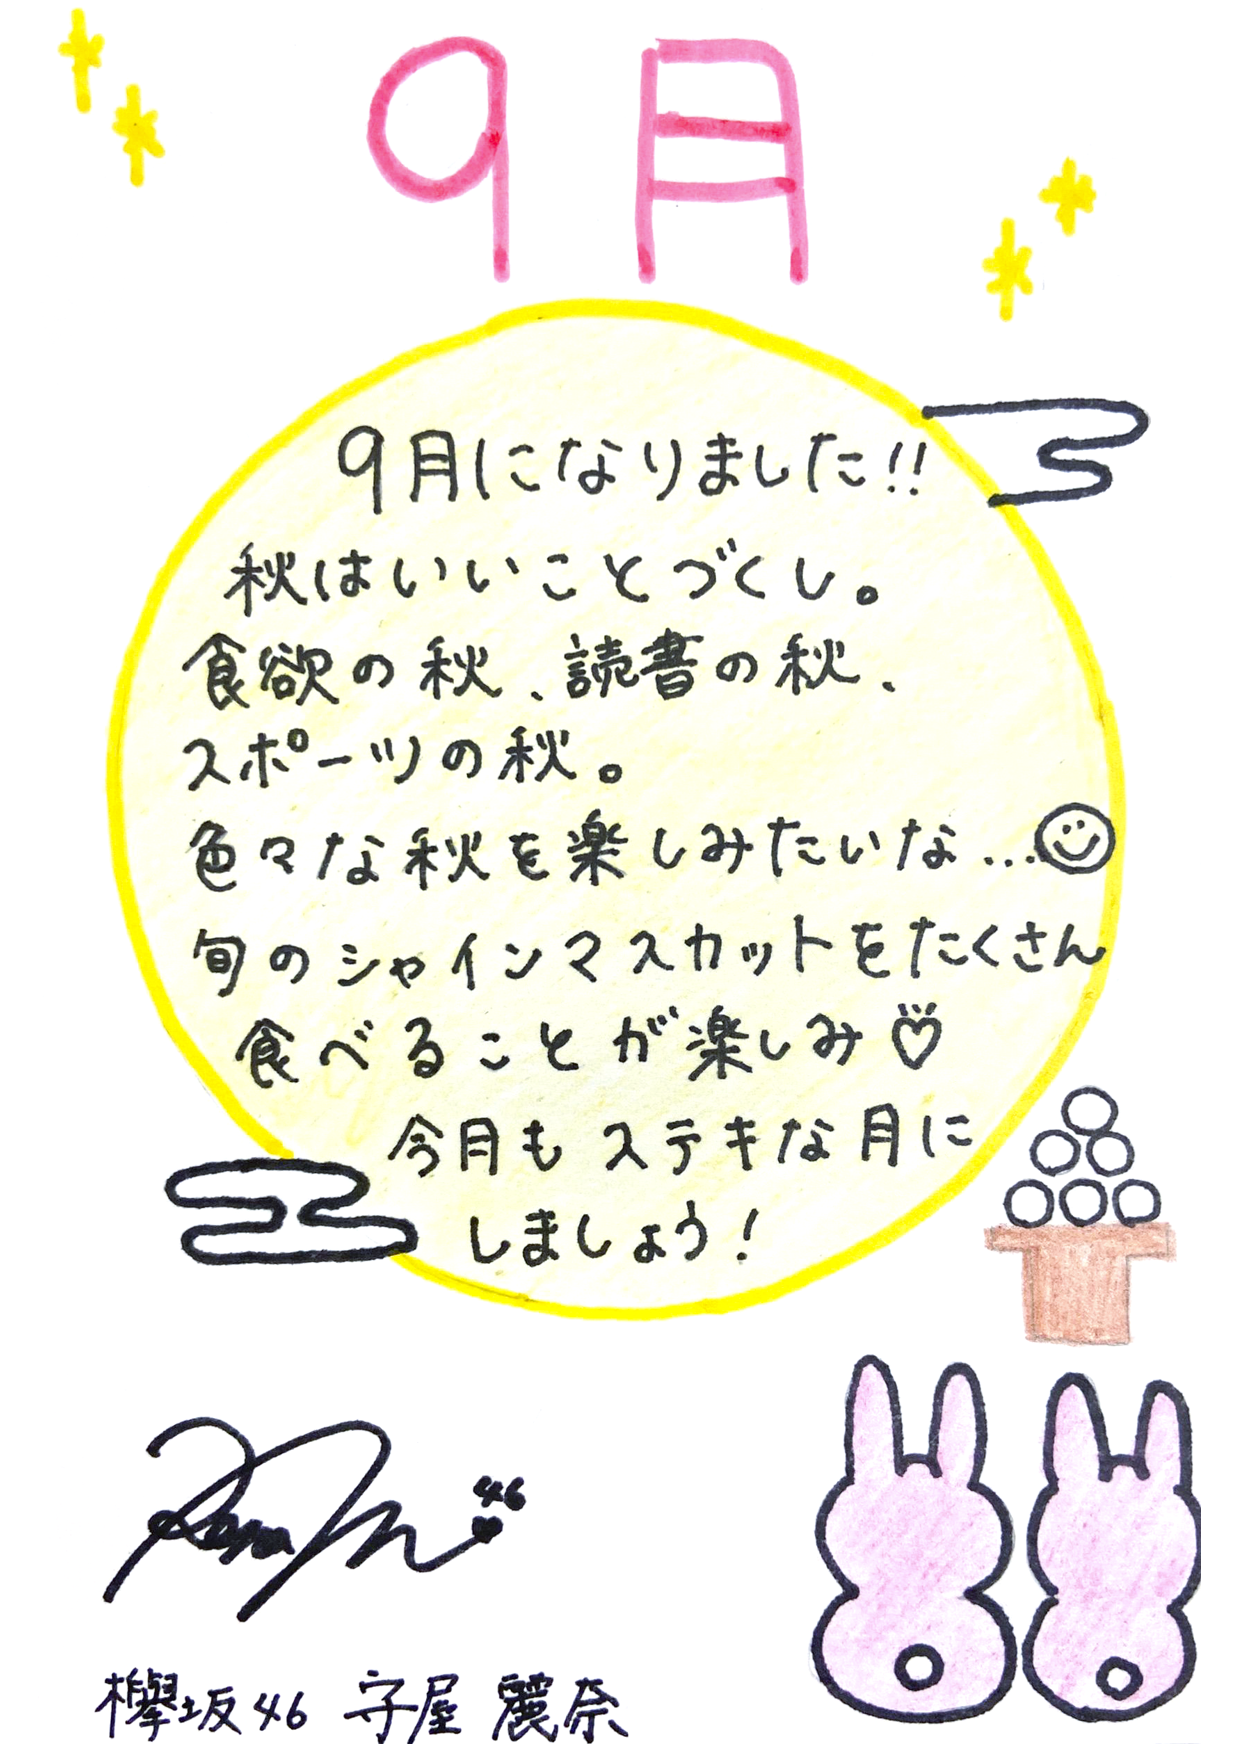 9月
9月になりました!!
秋はいいことづくし。
食欲の秋、読書の秋、
スポーツの秋。
色々な秋を楽しみたいな…
旬のシャインマスカットをたくさん
食べることが楽しみ♡
今月もステキな月に
しましょう!
46
欅坂46 守屋 麗奈